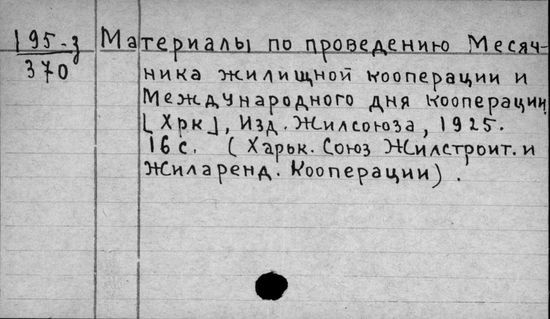 195-з
370
Материалы по проведению Месяч-
ника жилищной кооперации и
Международного дня кооперации
[Хрк], Изд. Жилсоюза, 1925.
16 с. (Харьк. Союз Жилстроит. и
Жиларенд. Кооперации).